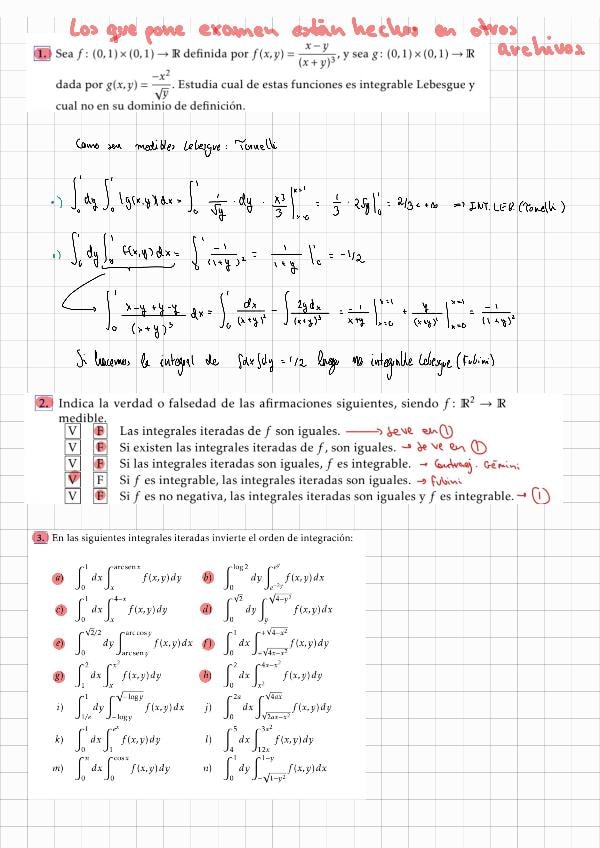 Los que pone examen están hechos en otros archivos
1. Sea f : (0,1)×(0,1) → ℝ definida por f(x,y) = (x−y)/(x+y)³, y sea g : (0,1)×(0,1) → ℝ
dada por g(x,y) = −x²/√y. Estudia cual de estas funciones es integrable Lebesgue y
cual no en su dominio de definición.
Como son medibles Lebesgue: Tonelli
•) ∫₀¹ dy ∫₀¹ |g(x,y)| dx = ∫₀¹ 1/√y · dy · x³/3 |ₓ₌₀ˣ⁼¹ = 1/3 · 2√y |₀¹ = 2/3 < +∞ ⇒ INT. LEB (Tonelli)
•) ∫₀¹ dy ∫₀¹ f(x,y) dx = ∫₀¹ −1/(1+y)² = 1/(1+y) |₀¹ = −1/2
∫₀¹ (x−y+y−y)/(x+y)³ dx = ∫₀¹ dx/(x+y)² − ∫ 2y dx/(x+y)³ = −1/(x+y) |ₓ₌₀ˣ⁼¹ + y/(x+y)² |ₓ₌₀ˣ⁼¹ = −1/(1+y)²
Si hacemos la integral de ∫dx∫dy = 1/2 luego no integrable Lebesgue (Fubini)
2. Indica la verdad o falsedad de las afirmaciones siguientes, siendo f : ℝ² → ℝ
medible.
V F Las integrales iteradas de f son iguales. → se ve en ①
V F Si existen las integrales iteradas de f, son iguales. → se ve en ①
V F Si las integrales iteradas son iguales, f es integrable. → Contraej. Gémini
V F Si f es integrable, las integrales iteradas son iguales. → Fubini
V F Si f es no negativa, las integrales iteradas son iguales y f es integrable. → ①
3. En las siguientes integrales iteradas invierte el orden de integración:
a) ∫₀¹ dx ∫ₓ^(arcsen x) f(x,y) dy b) ∫₀^(log 2) dy ∫_(e^(−2y))^(e^y) f(x,y) dx
c) ∫₀¹ dx ∫ₓ^(4−x) f(x,y) dy d) ∫₀^(√2) dy ∫_y^(√(4−y²)) f(x,y) dx
e) ∫₀^(√2/2) dy ∫_(arcsen y)^(arccos y) f(x,y) dx f) ∫₀¹ dx ∫_(+√(4x−x²))^(+√(4−x²)) f(x,y) dy
g) ∫₁² dx ∫ₓ^(x²) f(x,y) dy h) ∫₀² dx ∫_(x²)^(4x−x²) f(x,y) dy
i) ∫_(1/e)^1 dy ∫_(−log y)^(√(−log y)) f(x,y) dx j) ∫₀^(2a) dx ∫_(√(2ax−x²))^(√(4ax)) f(x,y) dy
k) ∫₀¹ dx ∫₁^(e^x) f(x,y) dy l) ∫₄⁵ dx ∫_(12x)^(3x²) f(x,y) dy
m) ∫₀^π dx ∫₀^(cos x) f(x,y) dy n) ∫₀¹ dy ∫_(−√(1−y²))^(1−y) f(x,y) dx